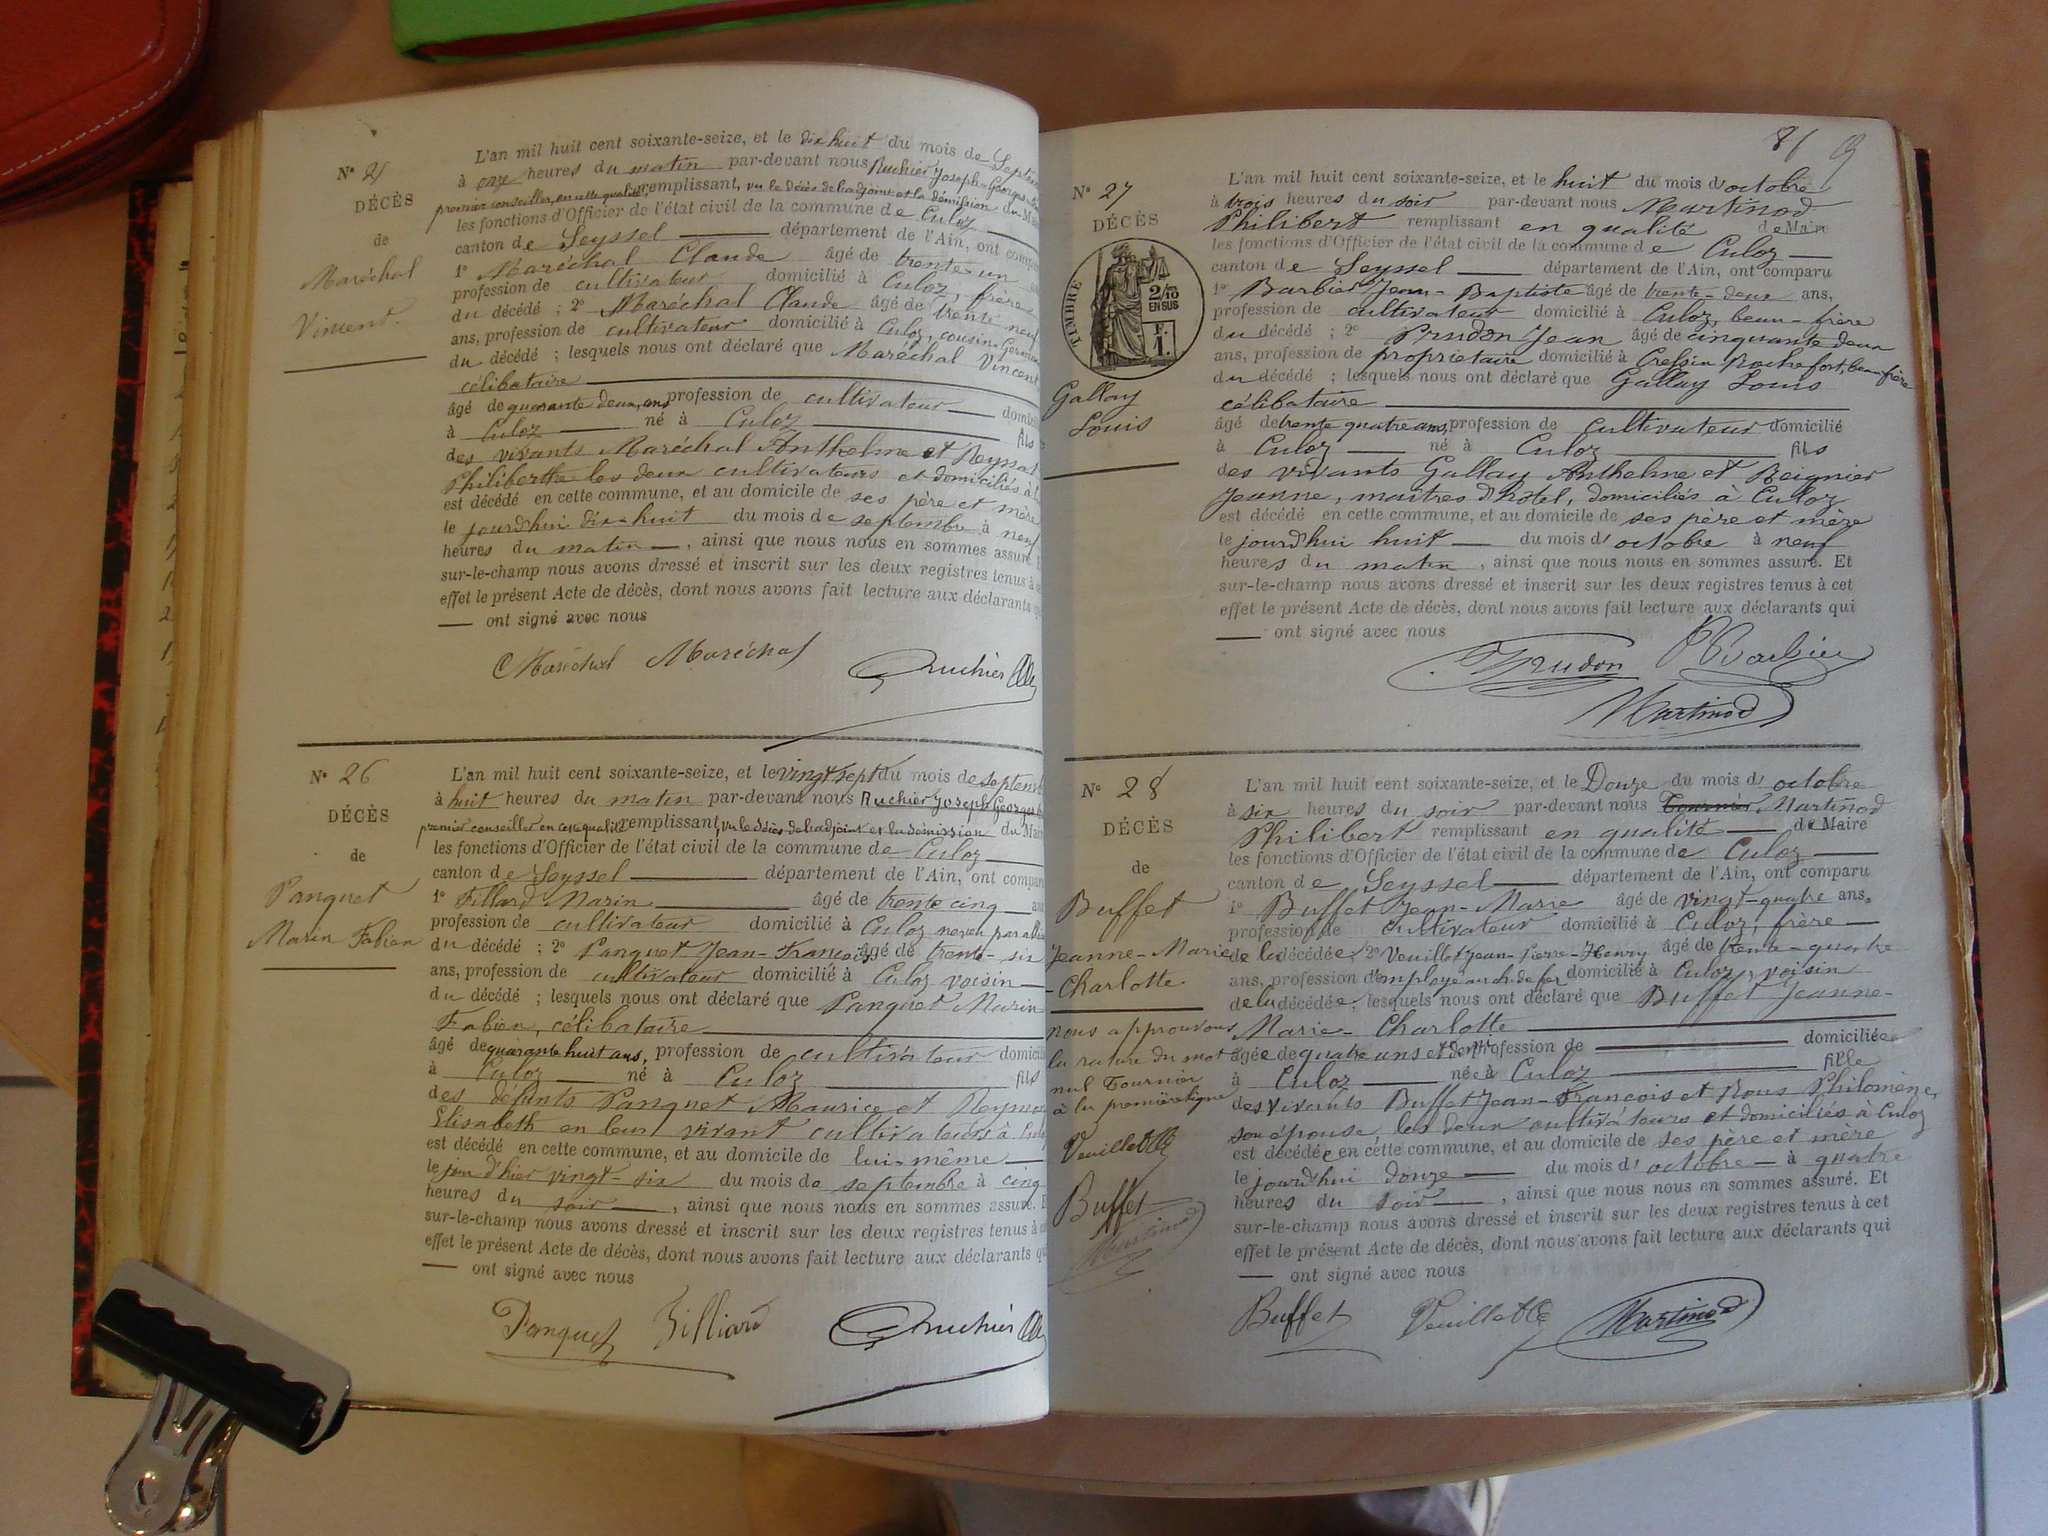 N° 25
DÉCÈS
de
Maréchal
Vincent.
L'an mil huit cent soixante-seize, et le dix huit du mois de Septem
à onze heures du matin par-devant nous Ruchier Joseph Georges
premier conseiller, en cette qualité remplissant, vu le décès de l'adjoint et la démission du Maire
les fonctions d'Officier de l'état civil de la commune de Culoz
canton de Seyssel département de l'Ain, ont compa
1° Maréchal Claude âgé de trente-un
profession de cultivateur domicilié à Culoz, frère
du décédé ; 2° Maréchal Claude âgé de trente neuf
ans, profession de cultivateur domicilié à Culoz, cousin-Germain
du décédé ; lesquels nous ont déclaré que Maréchal Vincent
célibataire
âgé de quarante deux, ans profession de cultivateur domicil
à Culoz né à Culoz fils
des vivants Maréchal Anthelme et Neyssat
Philiberthe les deux cultivateurs et domiciliés à
est décédé en cette commune, et au domicile de ses père et mère
le jourd'hui dix-huit du mois de septembre à neuf
heures du matin , ainsi que nous nous en sommes assuré. E
sur-le-champ nous avons dressé et inscrit sur les deux registres tenus à cet
effet le présent Acte de décès, dont nous avons fait lecture aux déclarants qu
ont signé avec nous
Maréchal Maréchal Ruchier
N° 26
DÉCÈS
de
Panquet
Marin Fabien
L'an mil huit cent soixante-seize, et le vingt sept du mois de septemb
à huit heures du matin par-devant nous Ruchier Joseph Georges
premier conseiller en cette qualité remplissant, vu le décès de l'adjoint et la démission du Maire
les fonctions d'Officier de l'état civil de la commune de Culoz
canton de Seyssel département de l'Ain, ont comparu
1° Fillard Marin âgé de trente cinq ans
profession de cultivateur domicilié à Culoz neveu par
du décédé ; 2° Panquet Jean-Francois âgé de trente-six
ans, profession de cultivateur domicilié à Culoz voisin
du décédé ; lesquels nous ont déclaré que Panquet Marin
Fabien, célibataire
âgé de quarante huit ans, profession de cultivateur domicili
à Culoz né à Culoz fils
des défunts Panquet Maurice et Reymon
Elisabeth en leur vivant cultivateurs à Culo
est décédé en cette commune, et au domicile de lui-même
le jour d'hier vingt-six du mois de septembre à cinq
heures du soir , ainsi que nous nous en sommes assuré. E
sur-le-champ nous avons dressé et inscrit sur les deux registres tenus à
effet le présent Acte de décès, dont nous avons fait lecture aux déclarants qu
ont signé avec nous
Panquet Billiard Ruchier
86 9
N° 27
DÉCÈS
TIMBRE
2/10
EN SUS
F.
1.
Gallay
Louis
L'an mil huit cent soixante-seize, et le huit du mois d'octobre
à trois heures du soir par-devant nous Martinod
Philibert remplissant en qualité de Maire
les fonctions d'Officier de l'état civil de la commune de Culoz
canton de Seyssel département de l'Ain, ont comparu
1° Barbier Jean-Baptiste âgé de trente-deux ans,
profession de cultivateur domicilié à Culoz, beau-frère
du décédé ; 2° Prudon Jean âgé de cinquante deux
ans, profession de propriétaire domicilié à Cressin Rochefort, beau-frère
du décédé ; lesquels nous ont déclaré que Gallay Louis
célibataire
âgé de trente quatre ans, profession de cultivateur domicilié
à Culoz né à Culoz fils
des vivants Gallay Anthelme et Beignier
Jeanne, maitres d'hôtel, domiciliés à Culoz
est décédé en cette commune, et au domicile de ses père et mère
le jourd'hui huit du mois d'octobre à neuf
heures du matin , ainsi que nous nous en sommes assuré. Et
sur-le-champ nous avons dressé et inscrit sur les deux registres tenus à cet
effet le présent Acte de décès, dont nous avons fait lecture aux déclarants qui
ont signé avec nous
Prudon Barbier
Martinod
N° 28
DÉCÈS
de
Buffet
Jeanne-Marie
-Charlotte
nous approuvons
la rature du mot
nul Tournier
à la première ligne
Veuillet
Buffet
Martinod
L'an mil huit cent soixante-seize, et le Douze du mois d'octobre
à six heures du soir par-devant nous Tournier Martinod
Philibert remplissant en qualité de Maire
les fonctions d'Officier de l'état civil de la commune de Culoz
canton de Seyssel département de l'Ain, ont comparu
1° Buffet Jean-Marie âgé de vingt-quatre ans,
profession de cultivateur domicilié à Culoz, frère
de la décédée ; 2° Veuillet Jean-Pierre-Henry âgé de trente-quatre
ans, profession d'employé au ch. de fer domicilié à Culoz, voisin
de la décédée ; lesquels nous ont déclaré que Buffet Jeanne-
Marie-Charlotte
âgée de quatre ans et demi profession de domiciliée
à Culoz née à Culoz fille
des vivants Buffet Jean-Francois et Rous Philomène,
son épouse, les deux cultivateurs et domiciliés à Culoz
est décédée en cette commune, et au domicile de ses père et mère
le jourd'hui douze du mois d'octobre à quatre
heures du soir , ainsi que nous nous en sommes assuré. Et
sur-le-champ nous avons dressé et inscrit sur les deux registres tenus à cet
effet le présent Acte de décès, dont nous avons fait lecture aux déclarants qui
ont signé avec nous
Buffet Veuillet Martinod